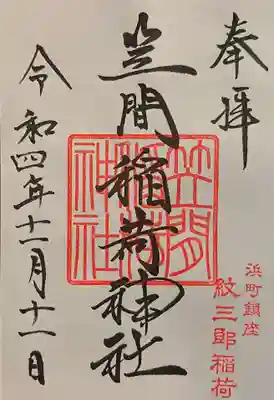 奉拝
浜町鎮座
紋三郎稲荷
笠間稲荷神社
笠間稲荷神社
令和四年十一月十一日